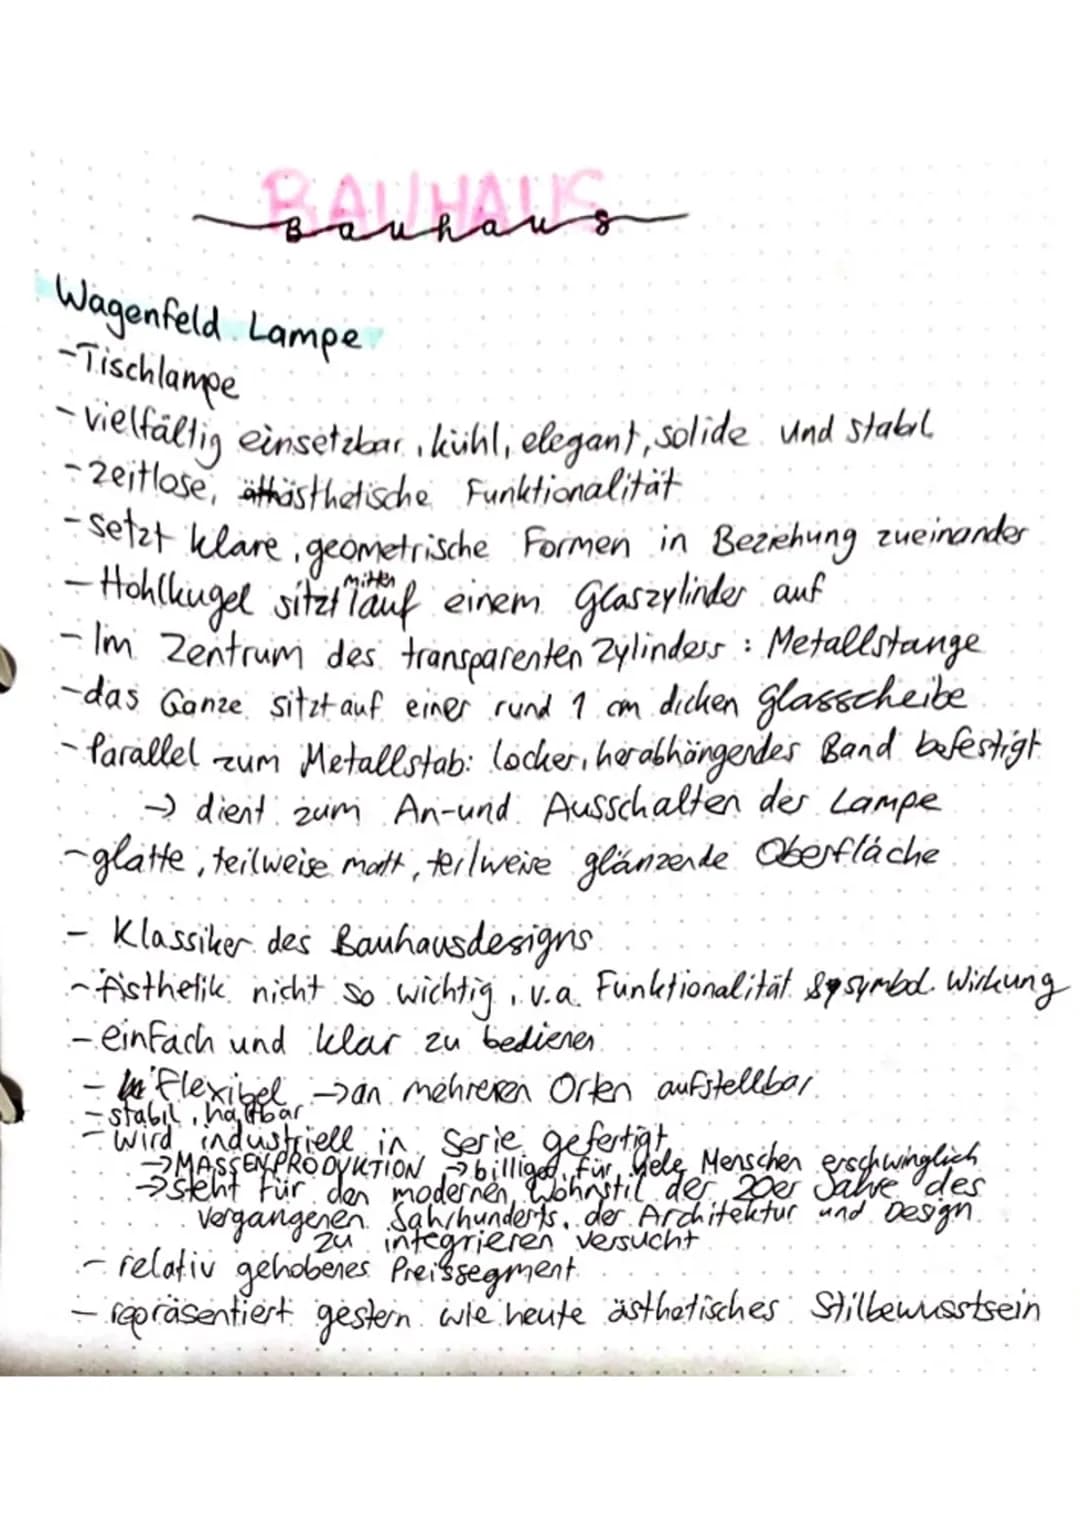 BAUHAUS
Bauhaus
Wagenfeld Lampe
-Tischlampe
- vielfältig einsetzbar, kühl, elegant, solide und stabil
- zeitlose, ästhetische Funktionalität
- setzt klare, geometrische Formen in Beziehung zueinander
- Hohlkugel sitzt mitten auf einem Glaszylinder auf
- Im Zentrum des transparenten Zylinders : Metallstange
- das Ganze sitzt auf einer rund 1 cm dicken Glasscheibe
- Parallel zum Metallstab: locker, herabhängendes Band befestigt
-> dient zum An-und Ausschalten der Lampe
- glatte, teilweise matt, teilweise glänzende Oberfläche
- Klassiker des Bauhausdesigns
- Ästhetik nicht so wichtig, v.a. Funktionalität & symbol. Wirkung
- einfach und klar zu bedienen
- Flexibel -> an mehreren Orten aufstellbar
- stabil, haltbar
- Wird industriell in Serie gefertigt
-> MASSENPRODUKTION -> billiger, für viele Menschen erschwinglich
-> steht für den modernen Wohnstil der 20er Jahre des
vergangenen Jahrhunderts, der Architektur und Design
zu integrieren versucht
- relativ gehobenes Preissegment
- repräsentiert gestern wie heute ästhetisches Stilbewusstsein